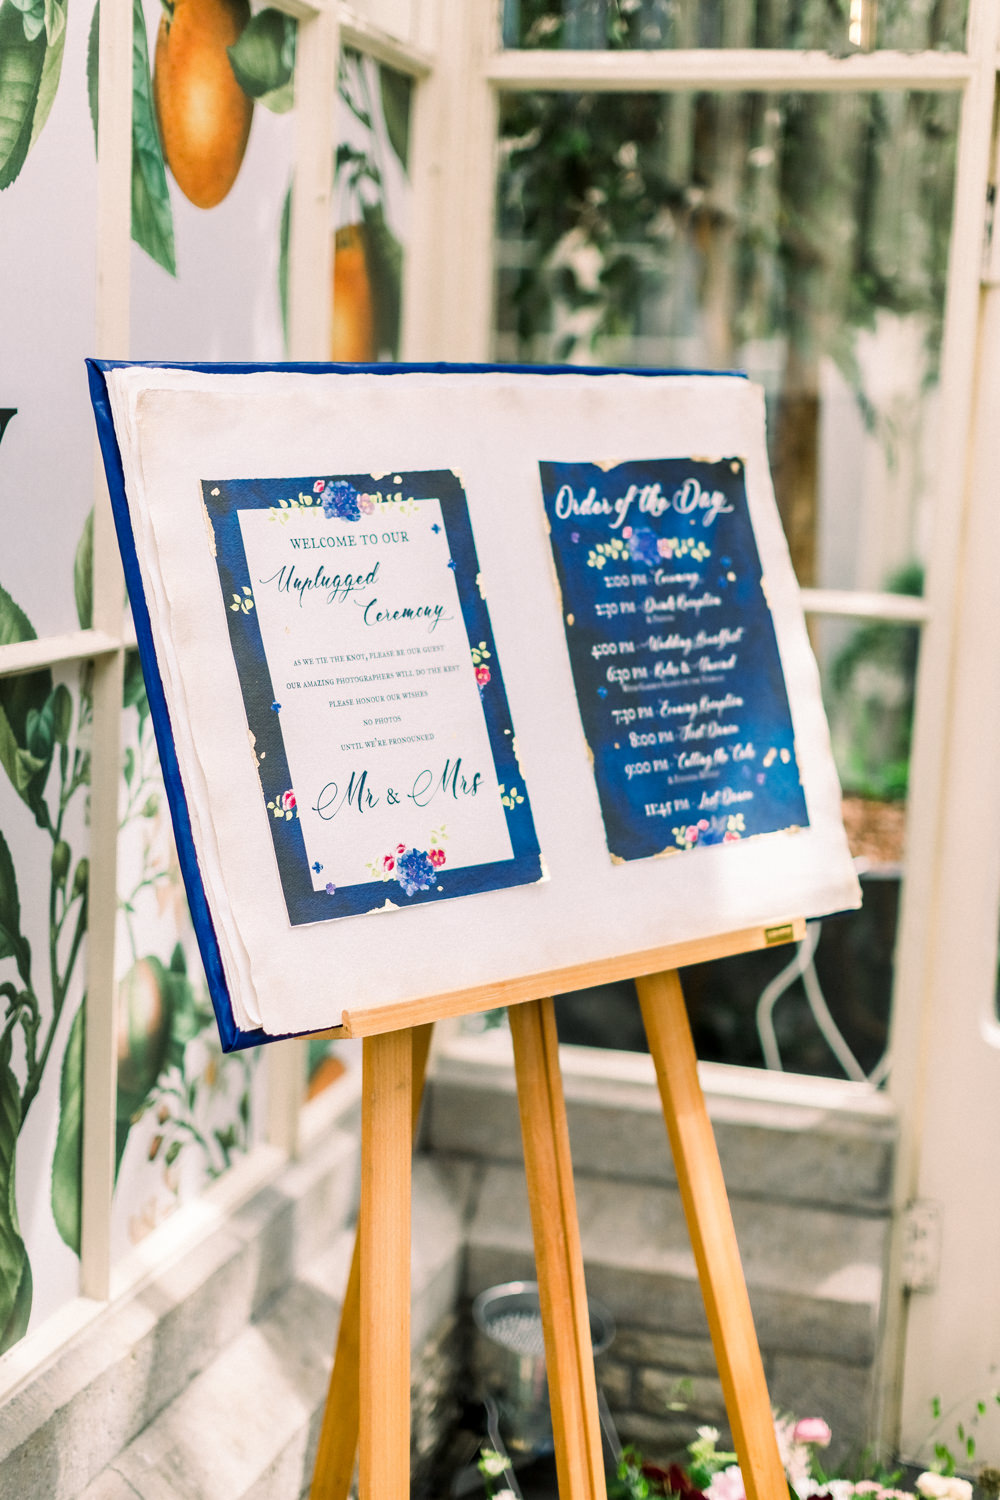 WELCOME TO OUR
Unplugged
Ceremony
AS WE TIE THE KNOT, PLEASE BE OUR GUEST
OUR AMAZING PHOTOGRAPHERS WILL DO THE REST
PLEASE HONOUR OUR WISHES
NO PHOTOS
UNTIL WE'RE PRONOUNCED
Mr & Mrs
Order of the Day
2:00 PM - Ceremony
2:30 PM - Drinks Reception
4:00 PM - Wedding Breakfast
6:30 PM - Relax & Unwind
7:30 PM - Evening Reception
8:00 PM - First Dance
9:00 PM - Cutting the Cake
11:45 PM - Last Dance